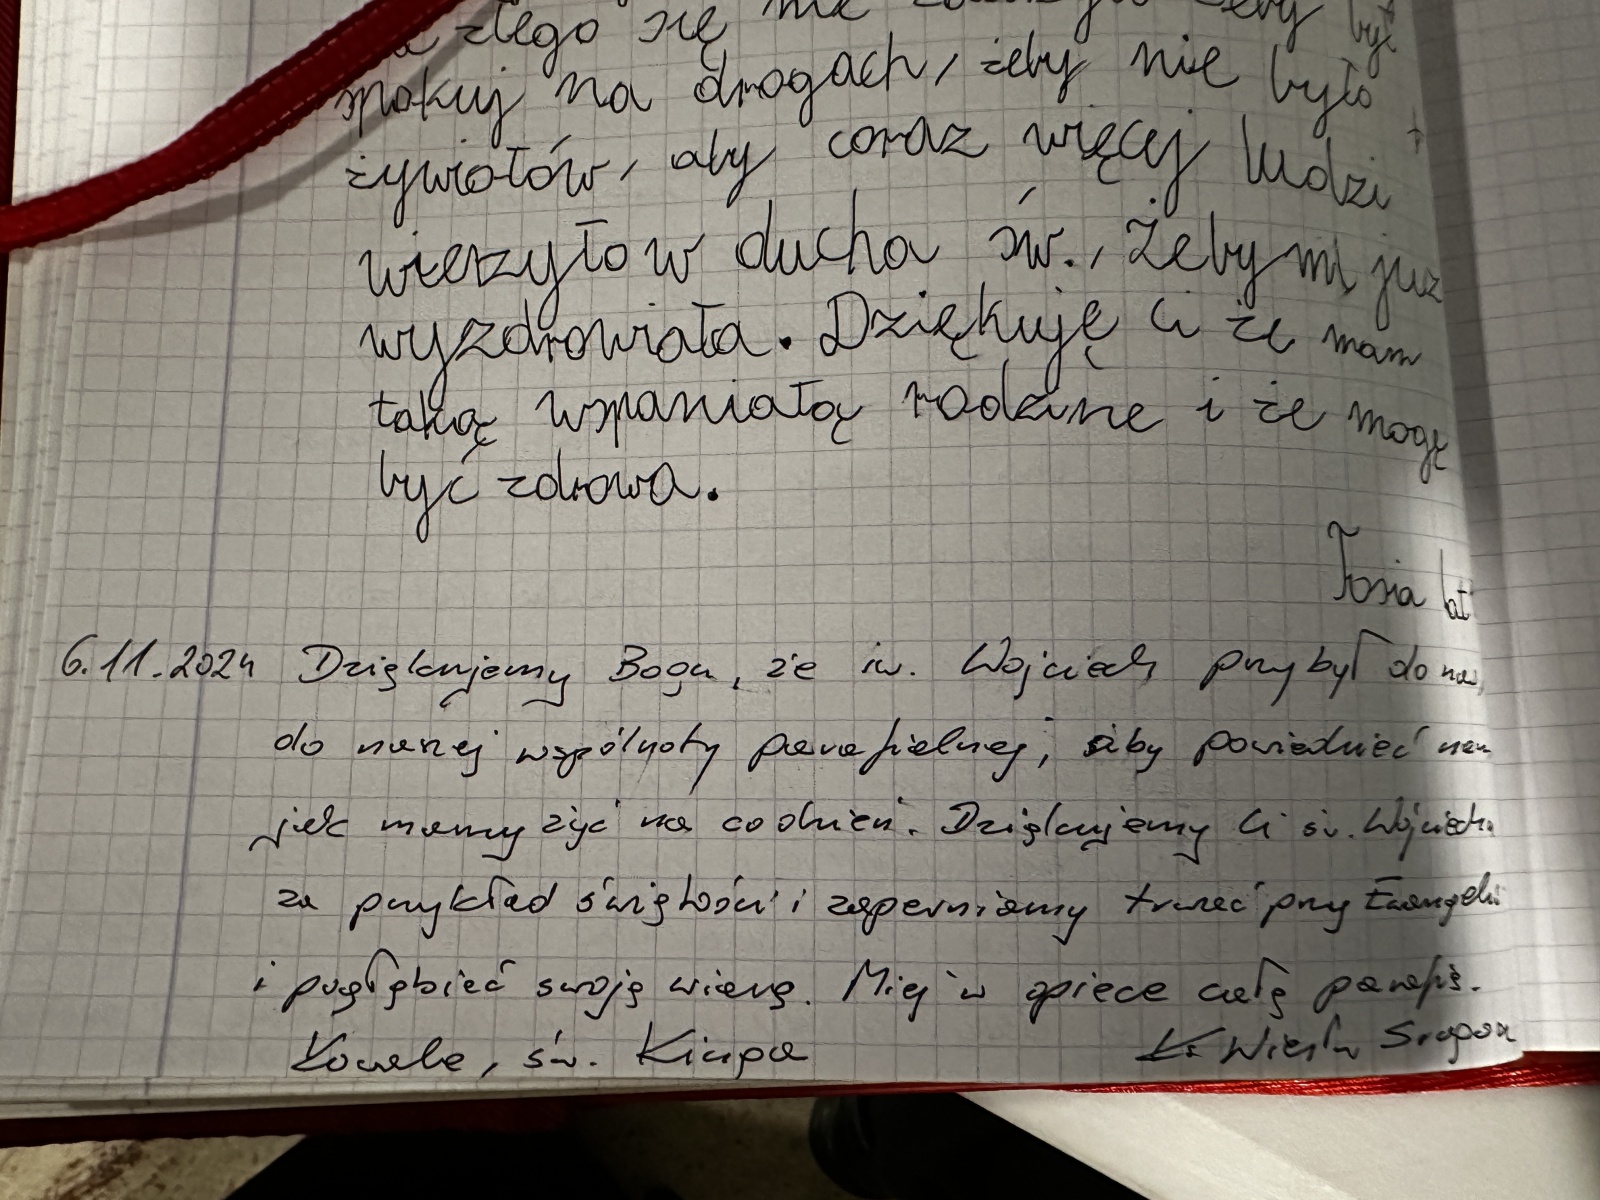 złego się nie żeby był
spokuj na drogach, żeby nie było
żywiołów, aby coraz więcej ludzi
wierzyło w ducha św., Żeby mi już
wyzdrowiała. Dziękuję Ci że mam
taką wspaniałą rodzinę i że mogę
być zdrowa.
Tosia lat
6.11.2024 Dziękujemy Bogu, że św. Wojciech przybył do nas,
do naszej wspólnoty parafialnej, aby powiedzieć nam
jak mamy żyć na co dzień. Dziękujemy Ci św. Wojciechu
za przykład świętości i zapewniamy trwać przy Ewangelii
i pogłębiać swoją wiarę. Miej w opiece całą parafię.
Kowale, św. Kinga
Ks Wiesław